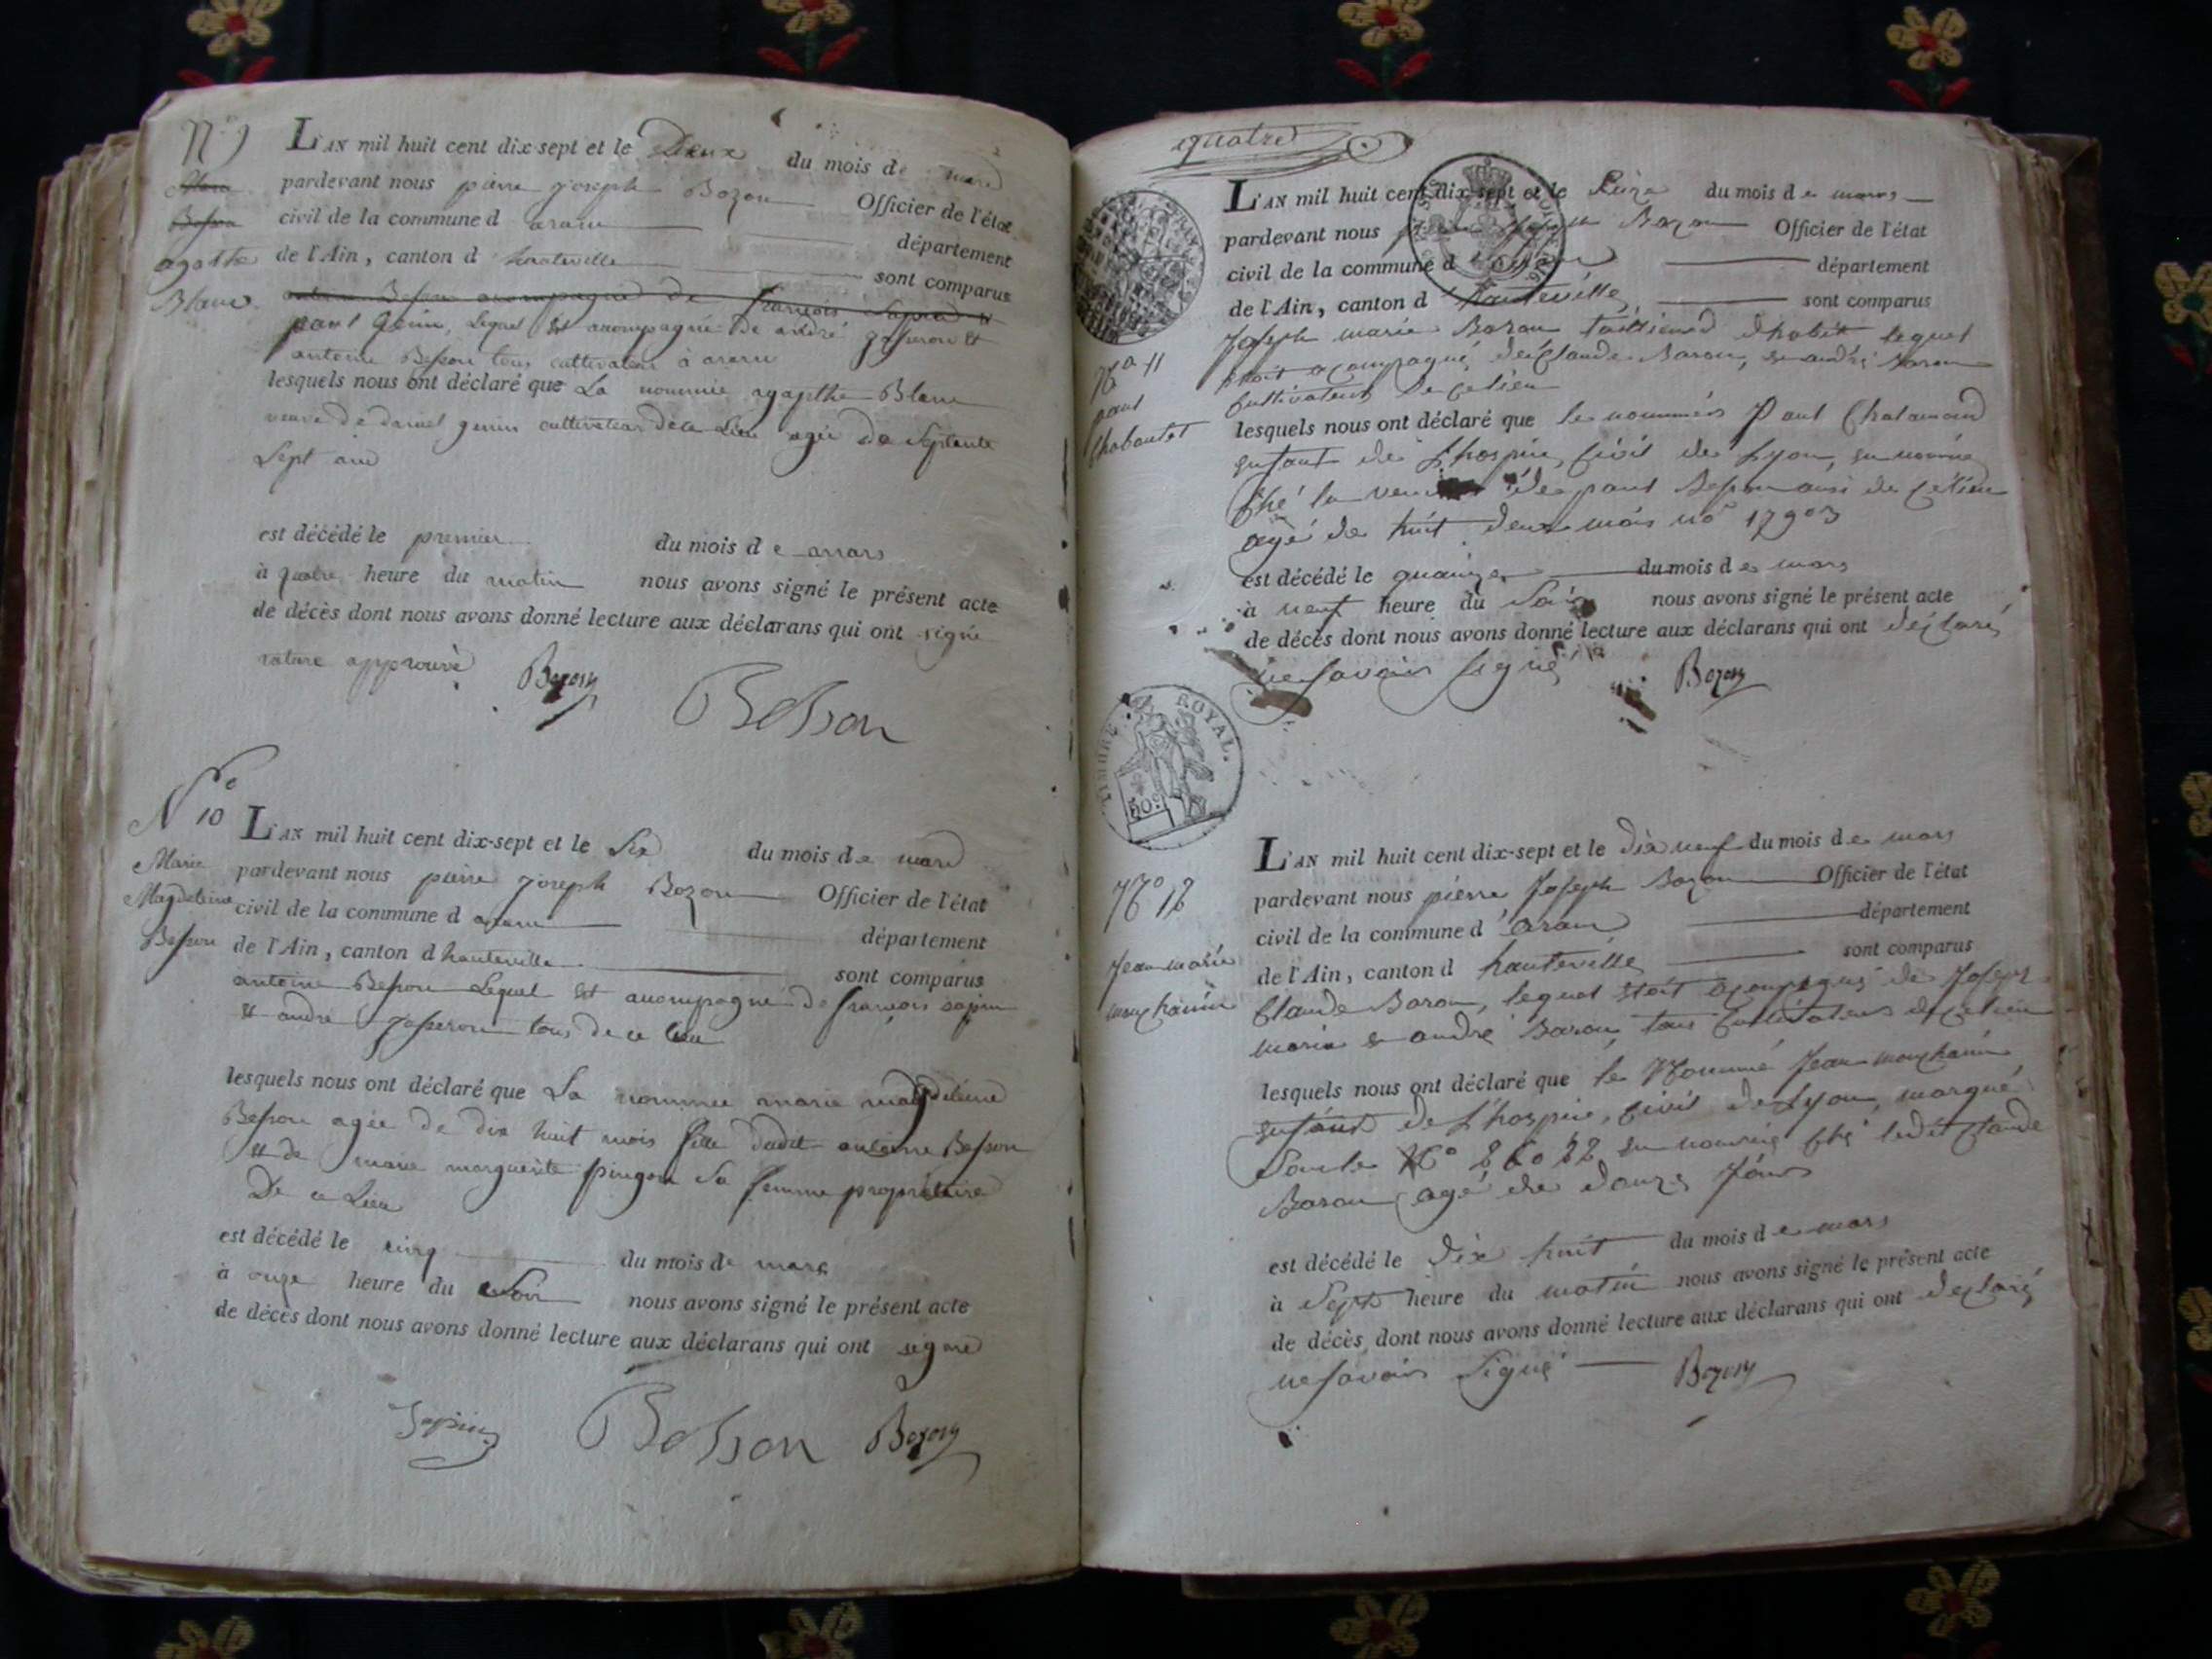 N° 9
agathe
Blanc
L'AN mil huit cent dix-sept et le Deux du mois de mars
pardevant nous pierre joseph Bozon Officier de l'état
civil de la commune d aranc département
de l'Ain, canton d hauteville sont comparus
antoine Besson accompagné de françois Sapin et
paul Genin, lequel est accompagné de andré josseron et
antoine Besson tous cultivateur à aranc
lesquels nous ont déclaré que La nommée agapthe Blanc
veuve de daniel genin cultivateur de ce Lieu agée de septante
sept ans
est décédé le premier du mois de mars
à quatre heure du matin nous avons signé le présent acte
de décès dont nous avons donné lecture aux déclarans qui ont signé
rature approuvé Bozon Besson
N° 10
Marie
Magdeleine
Besson
L'AN mil huit cent dix-sept et le Six du mois de mars
pardevant nous pierre joseph Bozon Officier de l'état
civil de la commune d aranc département
de l'Ain, canton d hauteville sont comparus
antoine Besson Lequel est accompagné de françois sapin
et andré josseron tous de ce Lieu
lesquels nous ont déclaré que La nommée marie magdeleine
Besson agée de dix huit mois fille dudit antoine Besson
et de marie marguerite pingon sa femme propriétaire
De ce Lieu
est décédé le cinq du mois de mars
à onze heure du soir nous avons signé le présent acte
de décès dont nous avons donné lecture aux déclarans qui ont signé
Sapin Besson Bozon
quatre
N° 11
paul
L'AN mil huit cent dix-sept et le Seize du mois de mars
pardevant nous Bozon Officier de l'état
civil de la commune d département
de l'Ain, canton d hauteville sont comparus
Joseph marie Baron d'habit lequel
etoit acompagné de Claude Baron, et andré Baron
Cultivateurs de ce lieu
lesquels nous ont déclaré que le nommés Paul
enfant de L'hospice Civil de Lyon, en nourrice
Ché la veuve de paul Besson aussi de ce lieu
agé de huit deux mois no 17903
est décédé le quainze du mois de mars
à neuf heure du Soir nous avons signé le présent acte
de décès dont nous avons donné lecture aux déclarans qui ont déclaré
ne savoir signé Bozon
TIMBRE ROYAL.
50c
N° 12
Jean marie
L'AN mil huit cent dix-sept et le dix neuf du mois de mars
pardevant nous pierre Joseph Bozon Officier de l'état
civil de la commune d'aranc département
de l'Ain, canton d hauteville sont comparus
Claude Baron, lequel etoit acompagné de Joseph
marie et andré Baron, tous Cultivateurs de ce lieu
lesquels nous ont déclaré que le Nommé Jean
enfant de L'hospice, Civil de Lyon, marqué
Sous le N° en nourrice Ché ledit Claude
Baron agé de douze Jours
est décédé le dix huit du mois de mars
à Sept heure du matin nous avons signé le présent acte
de décès dont nous avons donné lecture aux déclarans qui ont déclaré
ne savoir signé Bozon